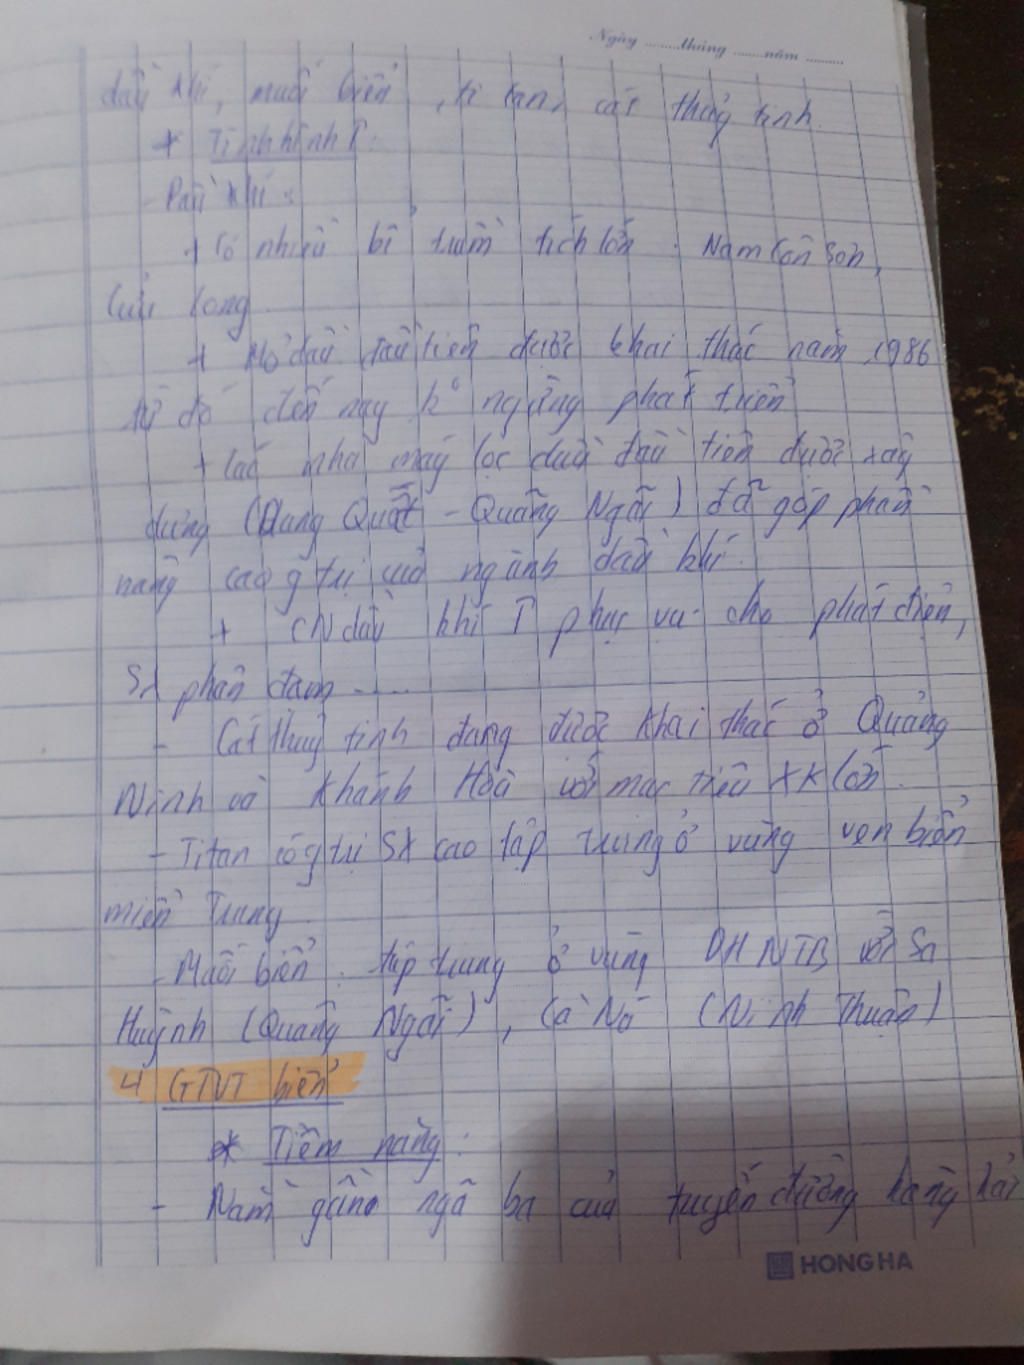 Ngày ........tháng ......năm .......
dầu khí, muối biển, ti tan, cát thuỷ tinh.
* Tình hình T:
- Dầu khí:
+ Có nhiều bể trầm tích lớn: Nam Côn Sơn,
Cửu Long
+ Mỏ dầu đầu tiên được khai thác năm 1986
từ đó đến nay k° ngừng phát triển
+ Các nhà máy lọc dầu đầu tiên được xây
dựng (Dung Quất - Quảng Ngãi) đã góp phần
nâng cao g trị của ngành dầu khí.
+ CN dầu khí T phục vụ cho phát điện,
SX phân đạm .....
- Cát thuỷ tinh đang được khai thác ở Quảng
Ninh và Khánh Hoà với mục tiêu XK lớn.
- Titan có g trị SX cao tập trung ở vùng ven biển
miền Trung
- Muối biển: tập trung ở vùng DH NTB với Sa
Huỳnh (Quảng Ngãi), Cà Ná (Ninh Thuận)
4 GTVT biển
* Tiềm năng:
- Nằm gần ngã ba của tuyến đường hàng hải
HONG HA